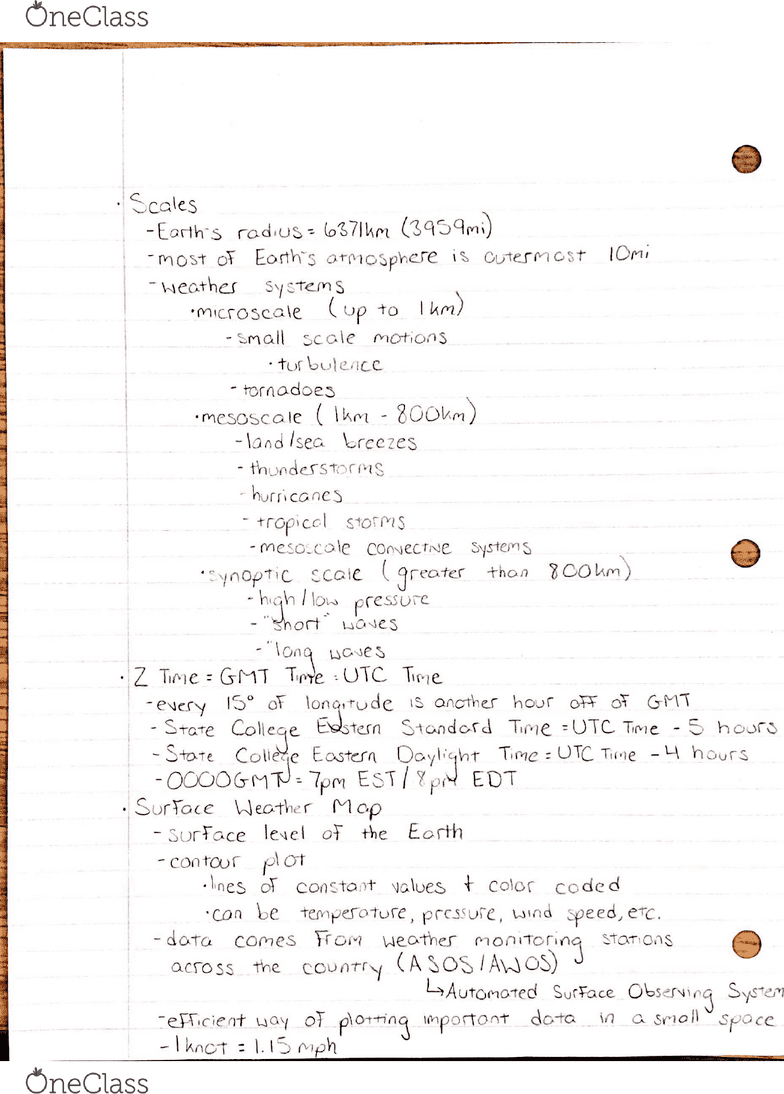 OneClass
· Scales
-Earth's radius = 6371km (3959mi)
-most of Earth's atmosphere is outermost 10mi
-weather systems
·microscale (up to 1km)
-small scale motions
·turbulence
-tornadoes
·mesoscale (1km - 800km)
-land/sea breezes
-thunderstorms
-hurricanes
-tropical storms
-mesoscale convective systems
·synoptic scale (greater than 800km)
-high/low pressure
-"short" waves
-"long waves
· Z Time = GMT Time = UTC Time
-every 15° of longitude is another hour off of GMT
-State College Eastern Standard Time = UTC Time - 5 hours
-State College Eastern Daylight Time = UTC Time - 4 hours
-0000GMT = 7pm EST/8pm EDT
· Surface Weather Map
-surface level of the Earth
-contour plot
·lines of constant values + color coded
·can be temperature, pressure, wind speed, etc.
-data comes from weather monitoring stations
across the country (ASOS/AWOS)
↳Automated Surface Observing System
-efficient way of plotting important data in a small space
-1knot = 1.15 mph
OneClass